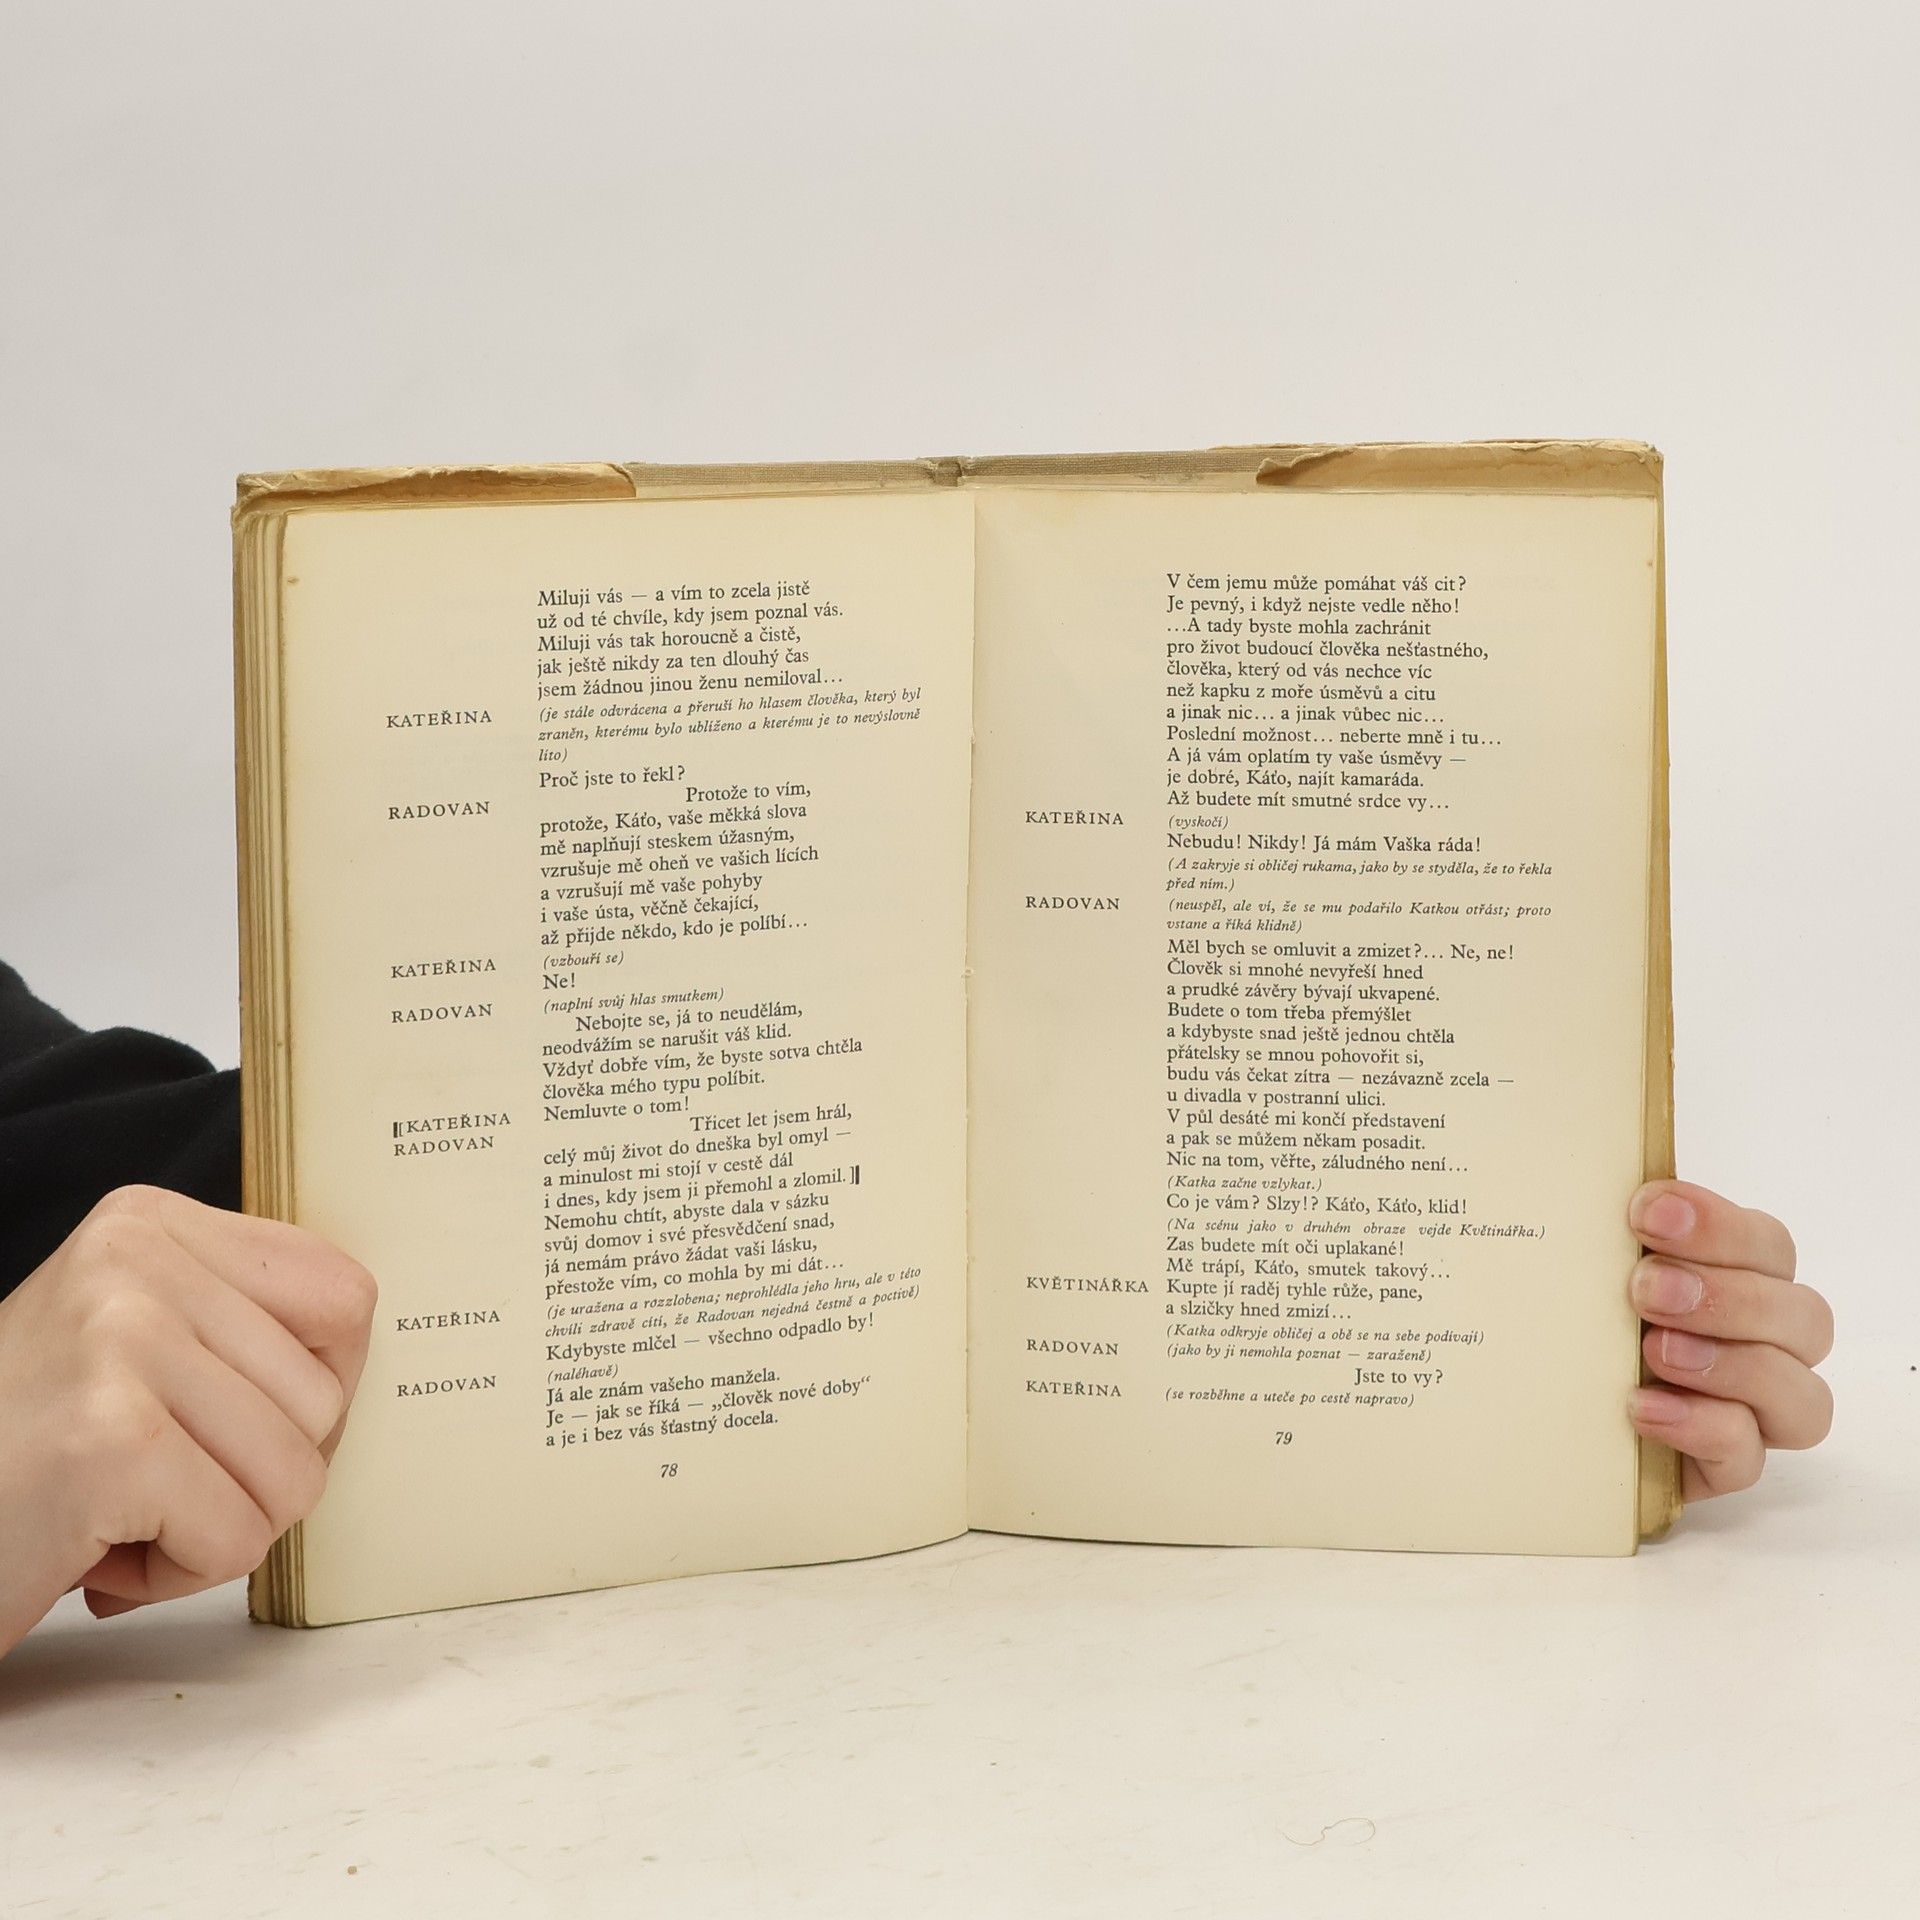 Miluji vás — a vím to zcela jistě
už od té chvíle, kdy jsem poznal vás.
Miluji vás tak horoucně a čistě,
jak ještě nikdy za ten dlouhý čas
jsem žádnou jinou ženu nemiloval...
KATEŘINA (je stále odvrácena a přeruší ho hlasem člověka, který byl
zraněn, kterému bylo ublíženo a kterému je to nevýslovně
líto)
Proč jste to řekl?
RADOVAN Protože to vím,
protože, Káťo, vaše měkká slova
mě naplňují steskem úžasným,
vzrušuje mě oheň ve vašich lících
a vzrušují mě vaše pohyby
i vaše ústa, věčně čekající,
až přijde někdo, kdo je políbí...
KATEŘINA (vzbouří se)
Ne!
RADOVAN (naplní svůj hlas smutkem)
Nebojte se, já to neudělám,
neodvážím se narušit váš klid.
Vždyť dobře vím, že byste sotva chtěla
člověka mého typu políbit.
[KATEŘINA Nemluvte o tom!
RADOVAN Třicet let jsem hrál,
celý můj život do dneška byl omyl —
a minulost mi stojí v cestě dál
i dnes, kdy jsem ji přemohl a zlomil.]
Nemohu chtít, abyste dala v sázku
svůj domov i své přesvědčení snad,
já nemám právo žádat vaši lásku,
přestože vím, co mohla by mi dát...
KATEŘINA (je uražena a rozzlobena; neprohlédla jeho hru, ale v této
chvíli zdravě cítí, že Radovan nejedná čestně a poctivě)
Kdybyste mlčel — všechno odpadlo by!
RADOVAN (naléhavě)
Já ale znám vašeho manžela.
Je — jak se říká — „člověk nové doby“
a je i bez vás šťastný docela.
78
V čem jemu může pomáhat váš cit?
Je pevný, i když nejste vedle něho!
...A tady byste mohla zachránit
pro život budoucí člověka nešťastného,
člověka, který od vás nechce víc
než kapku z moře úsměvů a citu
a jinak nic... a jinak vůbec nic...
Poslední možnost... neberte mně i tu...
A já vám oplatím ty vaše úsměvy —
je dobré, Káťo, najít kamaráda.
Až budete mít smutné srdce vy...
KATEŘINA (vyskočí)
Nebudu! Nikdy! Já mám Vaška ráda!
(A zakryje si obličej rukama, jako by se styděla, že to řekla
před ním.)
RADOVAN (neuspěl, ale ví, že se mu podařilo Katkou otřást; proto
vstane a říká klidně)
Měl bych se omluvit a zmizet?... Ne, ne!
Člověk si mnohé nevyřeší hned
a prudké závěry bývají ukvapené.
Budete o tom třeba přemýšlet
a kdybyste snad ještě jednou chtěla
přátelsky se mnou pohovořit si,
budu vás čekat zítra — nezávazně zcela —
u divadla v postranní ulici.
V půl desáté mi končí představení
a pak se můžem někam posadit.
Nic na tom, věřte, záludného není...
(Katka začne vzlykat.)
Co je vám? Slzy!? Káťo, Káťo, klid!
(Na scénu jako v druhém obraze vejde Květinářka.)
Zas budete mít oči uplakané!
Mě trápí, Káťo, smutek takový...
KVĚTINÁŘKA Kupte jí raděj tyhle růže, pane,
a slzičky hned zmizí...
(Katka odkryje obličej a obě se na sebe podívají)
RADOVAN (jako by ji nemohla poznat — zaraženě)
Jste to vy?
KATEŘINA (se rozběhne a uteče po cestě napravo)
79